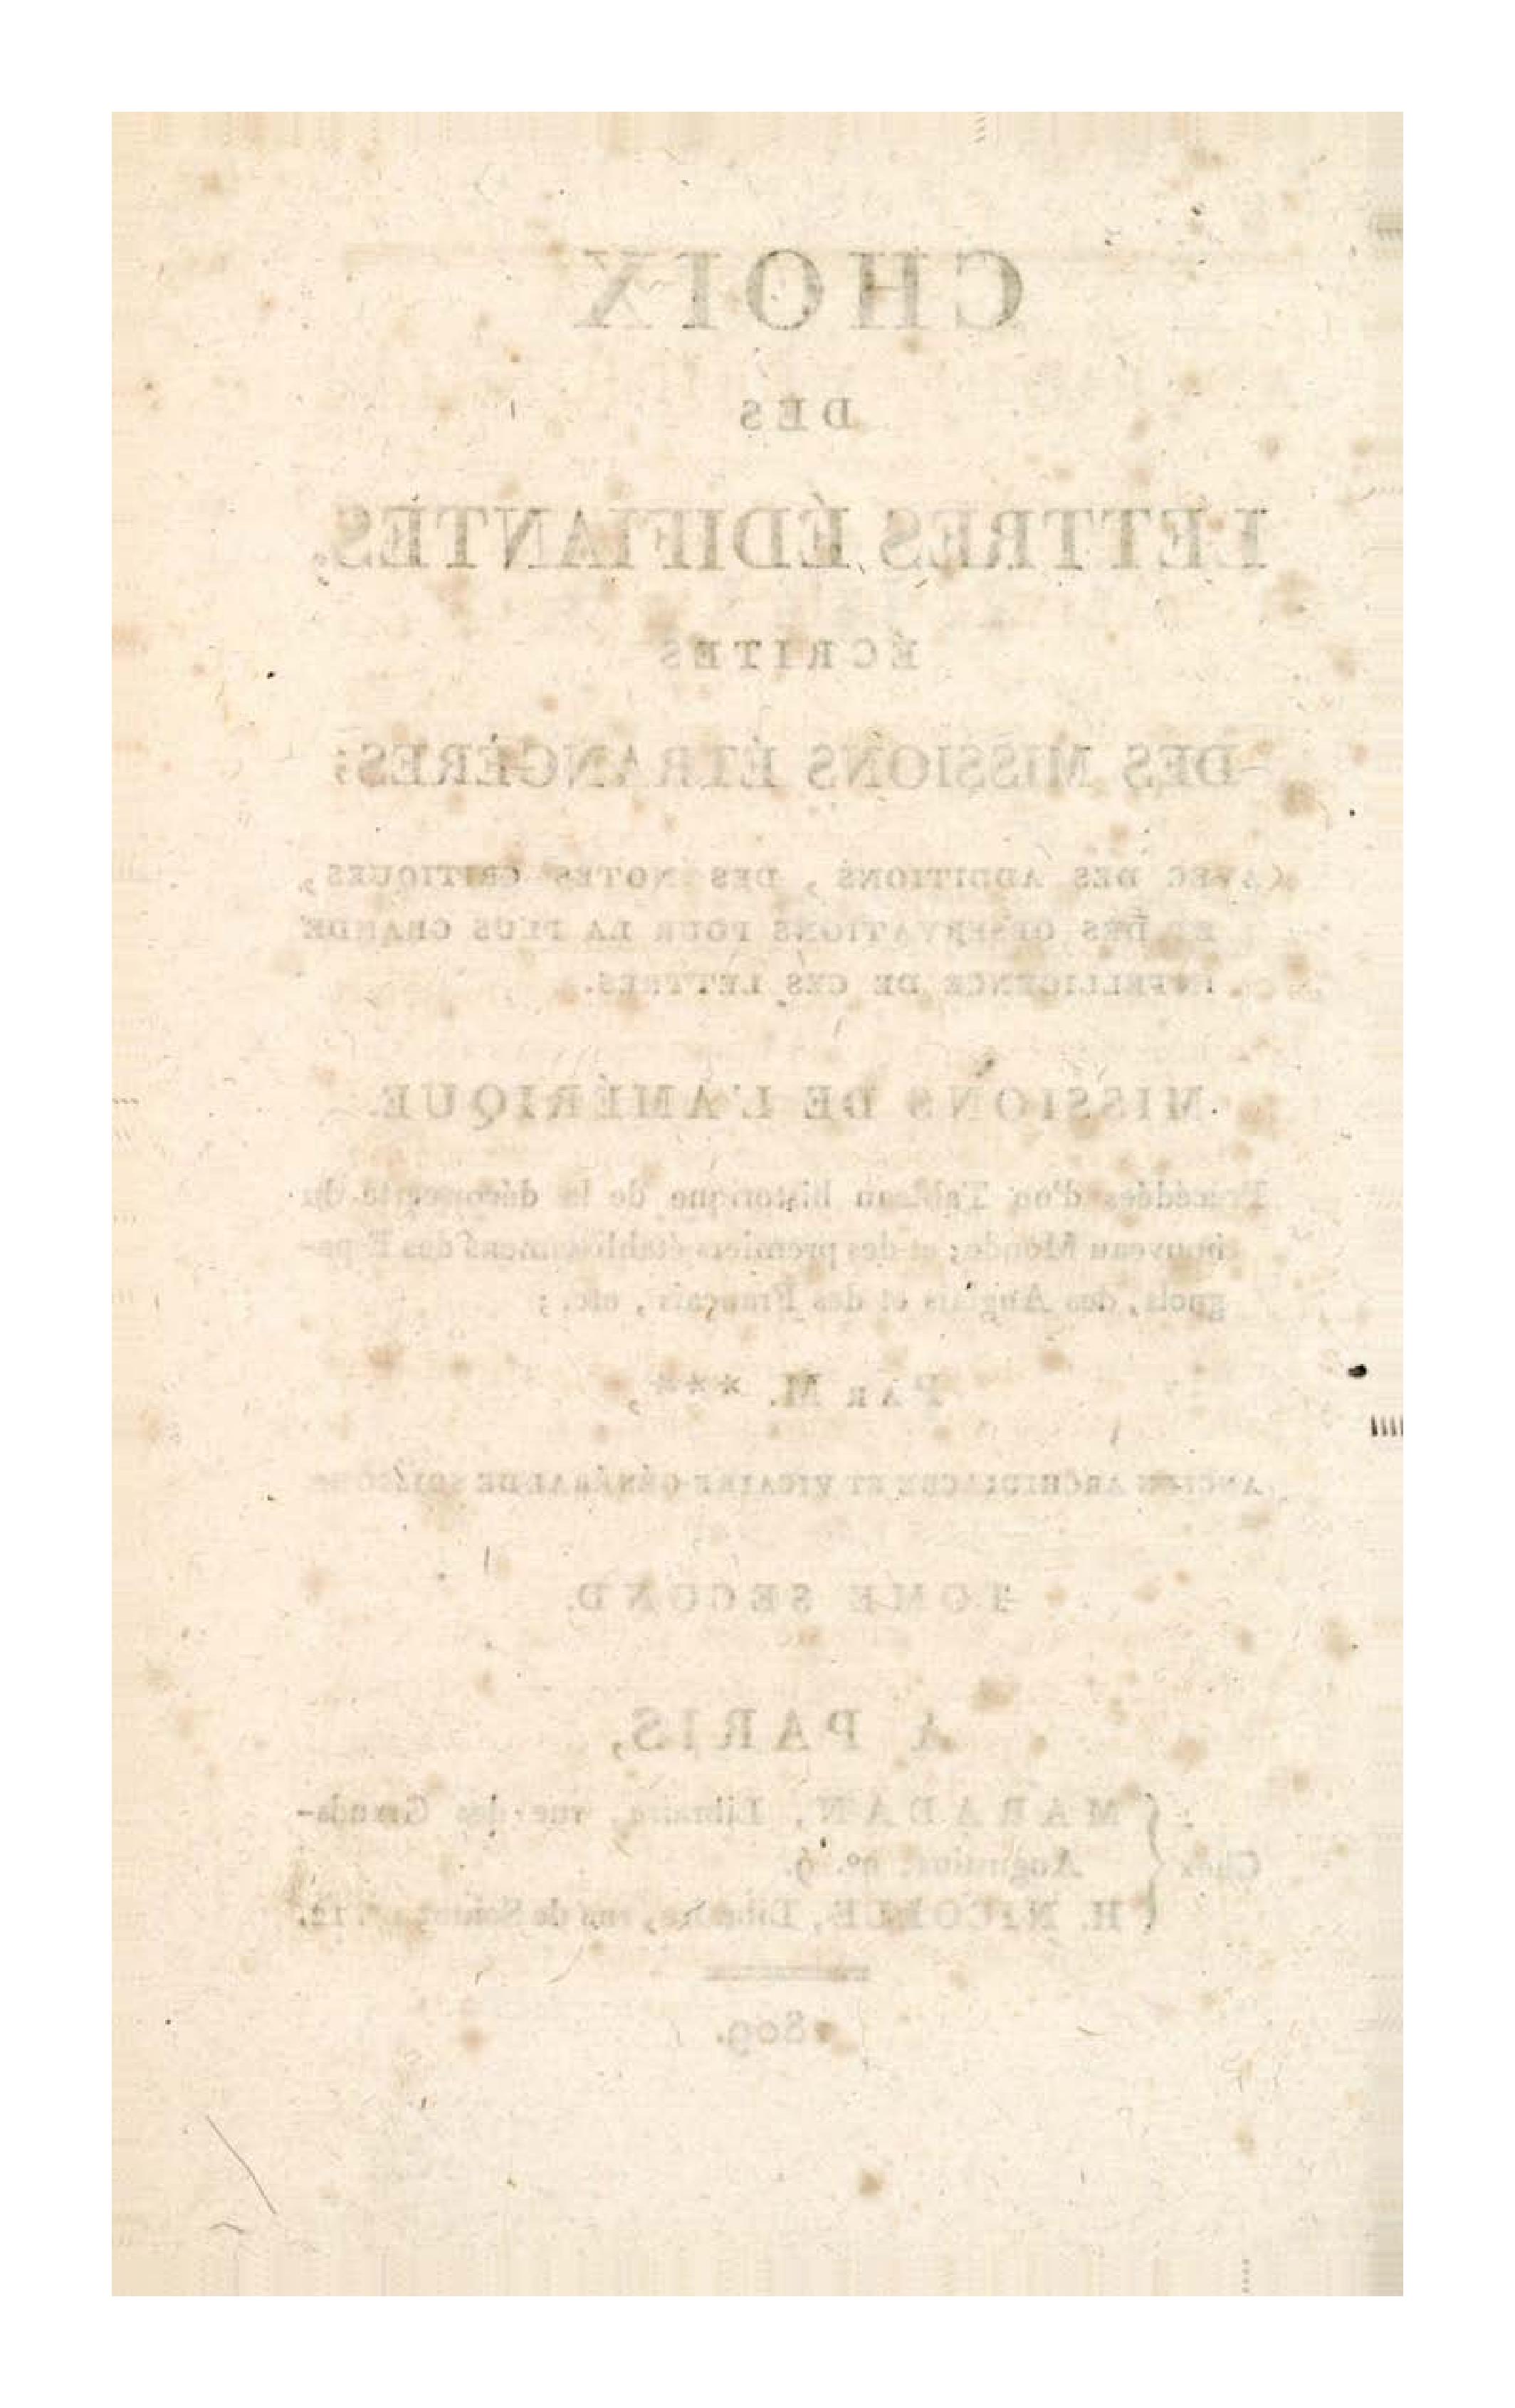 CHOIX
DES
LETTRES ÉDIFIANTES,
ÉCRITES
DES MISSIONS ÉTRANGÈRES;
AVEC DES ADDITIONS, DES NOTES CRITIQUES,
ET DES OBSERVATIONS POUR LA PLUS GRANDE
INTELLIGENCE DE CES LETTRES.
MISSIONS DE L'AMÉRIQUE
Précédées d'un Tableau historique de la découverte du
nouveau Monde; et des premiers établissemens des Espa-
gnols, des Anglais et des Français, etc.;
PAR M. ***,
ANCIEN ARCHIDIACRE ET VICAIRE GÉNÉRAL DE
TOME SECOND.
A PARIS,
Chez MARADAN, Libraire, rue des Grands-
Augustins, n°. 9.
H. NICOLLE, Libraire, rue de 12.
1809.